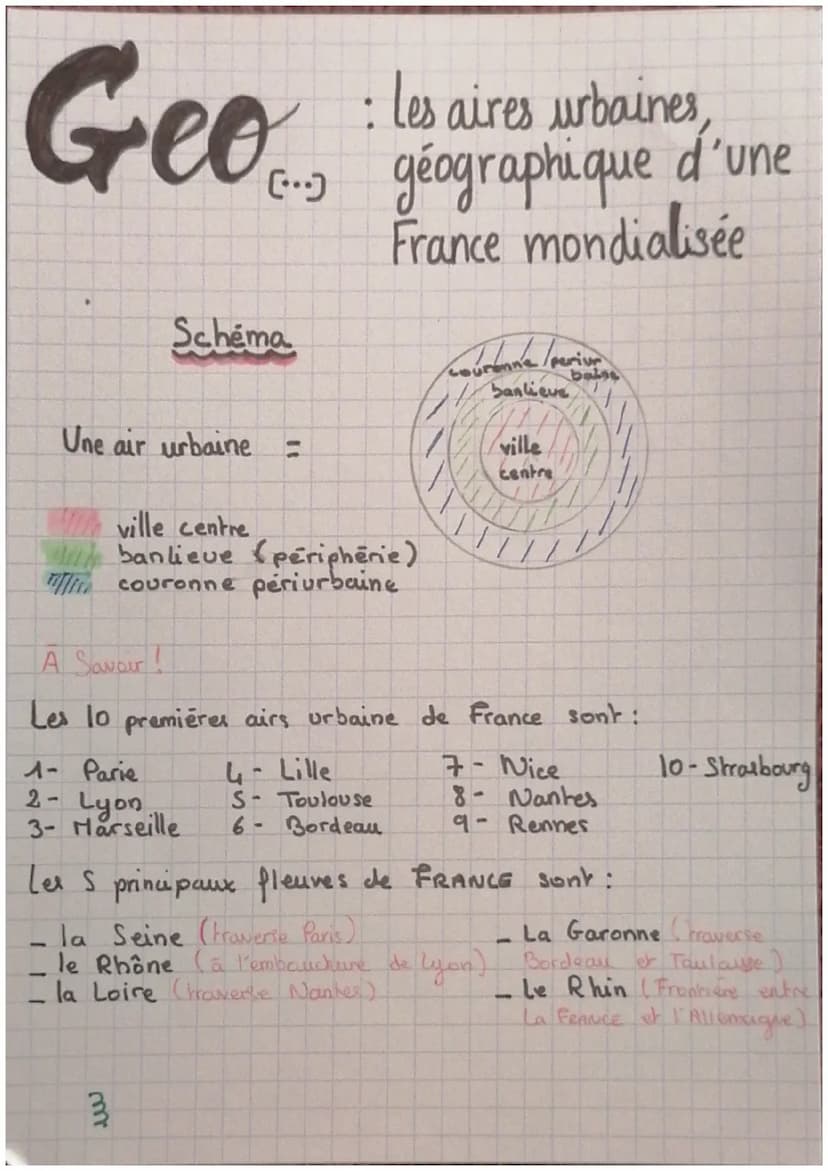 Geo : les aires urbaines,
[...] géographique d'une
France mondialisée
Schéma
couronne periur
baine
banlieue
Une air urbaine =
ville
centre
ville centre
banlieue (périphérie)
couronne périurbaine
À Savoir !
Les 10 premières airs urbaine de France sont :
1- Paris 4- Lille 7- Nice 10- Strasbourg
2- Lyon 5- Toulouse 8- Nantes
3- Marseille 6- Bordeau 9- Rennes
Les 5 principaux fleuves de FRANCE sont :
- la Seine (traverse Paris) - La Garonne (traverse
- le Rhône (à l'embauchure de Lyon) Bordeau et Toulouse)
- la Loire (traverse Nantes) - Le Rhin (Frontière entre
La FRANCE et l'Allemagne)